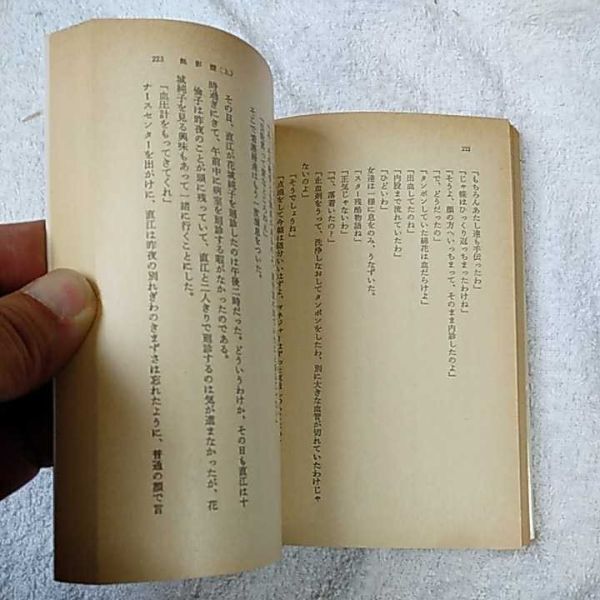 222
「もちろんあたし達も手伝ったわ」
「じゃ彼はひっくり返っちまったわけね」
「そうよ、顔の方へいっちまって、そのまま内診したのよ」
「で、どうだったの」
「タンポンしていた綿花は血だらけよ」
「出血してたの」
「内股まで流れていたわ」
「ひどいわ」
女達は一様に息をのみ、うなずいた。
「スター残酷物語ね」
「正気じゃないわ」
「で、落着いたの？」
「止血剤をうって、洗浄しなおしてタンポンをしたわ、別に大きな血管が切れていたわけじゃ
ないのよ」
「そうでしょうね」
223 無影燈(上)
その日、直江が花城純子を回診したのは午後二時だった。どういうわけか、その日も直江は十
時過ぎにきて、午前中に病室を回診する暇がなかったのである。
倫子は昨夜のことが頭に残っていて、直江と二人きりで回診するのは気が進まなかったが、花
城純子を見る興味もあって一緒に行くことにした。
「血圧計をもってきてくれ」
ナースセンターを出がけに、直江は昨夜の別れぎわのきまずさは忘れたように、普通の顔で言